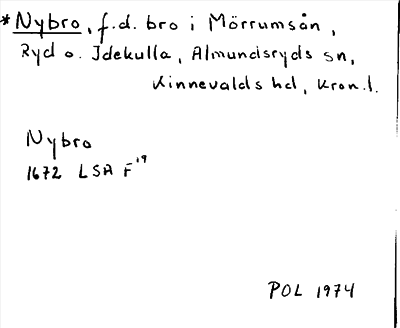 *Nybro, f.d. bro i Mörrumsån,
Ryd o. Idekulla, Almundsryds sn,
Kinnevalds hd, Kron.l.
Nybro
1672 LSA F19
POL 1974